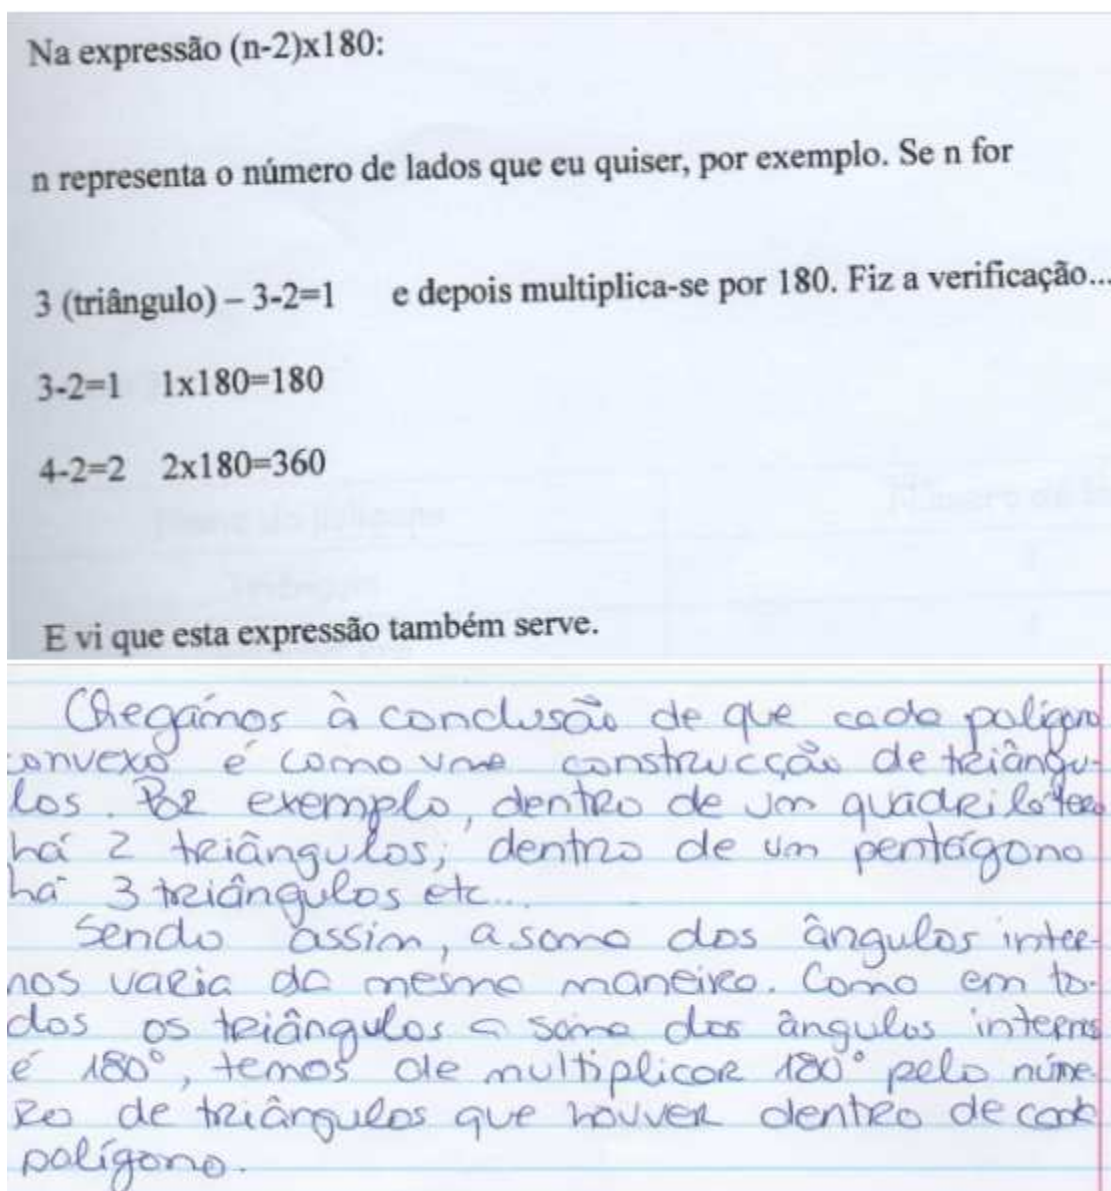 Na expressão (n-2)x180:
n representa o número de lados que eu quiser, por exemplo. Se n for
3 (triângulo) – 3-2=1 e depois multiplica-se por 180. Fiz a verificação...
3-2=1 1x180=180
4-2=2 2x180=360
E vi que esta expressão também serve.
Chegámos à conclusão de que cada polígono
convexo é como uma construcção de triângu-
los. Por exemplo, dentro de um quadrilátero
há 2 triângulos; dentro de um pentágono
há 3 triângulos etc...
Sendo assim, a soma dos ângulos inter-
nos varia da mesma maneira. Como em to-
dos os triângulos a soma dos ângulos internos
é 180°, temos de multiplicar 180° pelo núme-
ro de triângulos que houver dentro de cada
polígono.